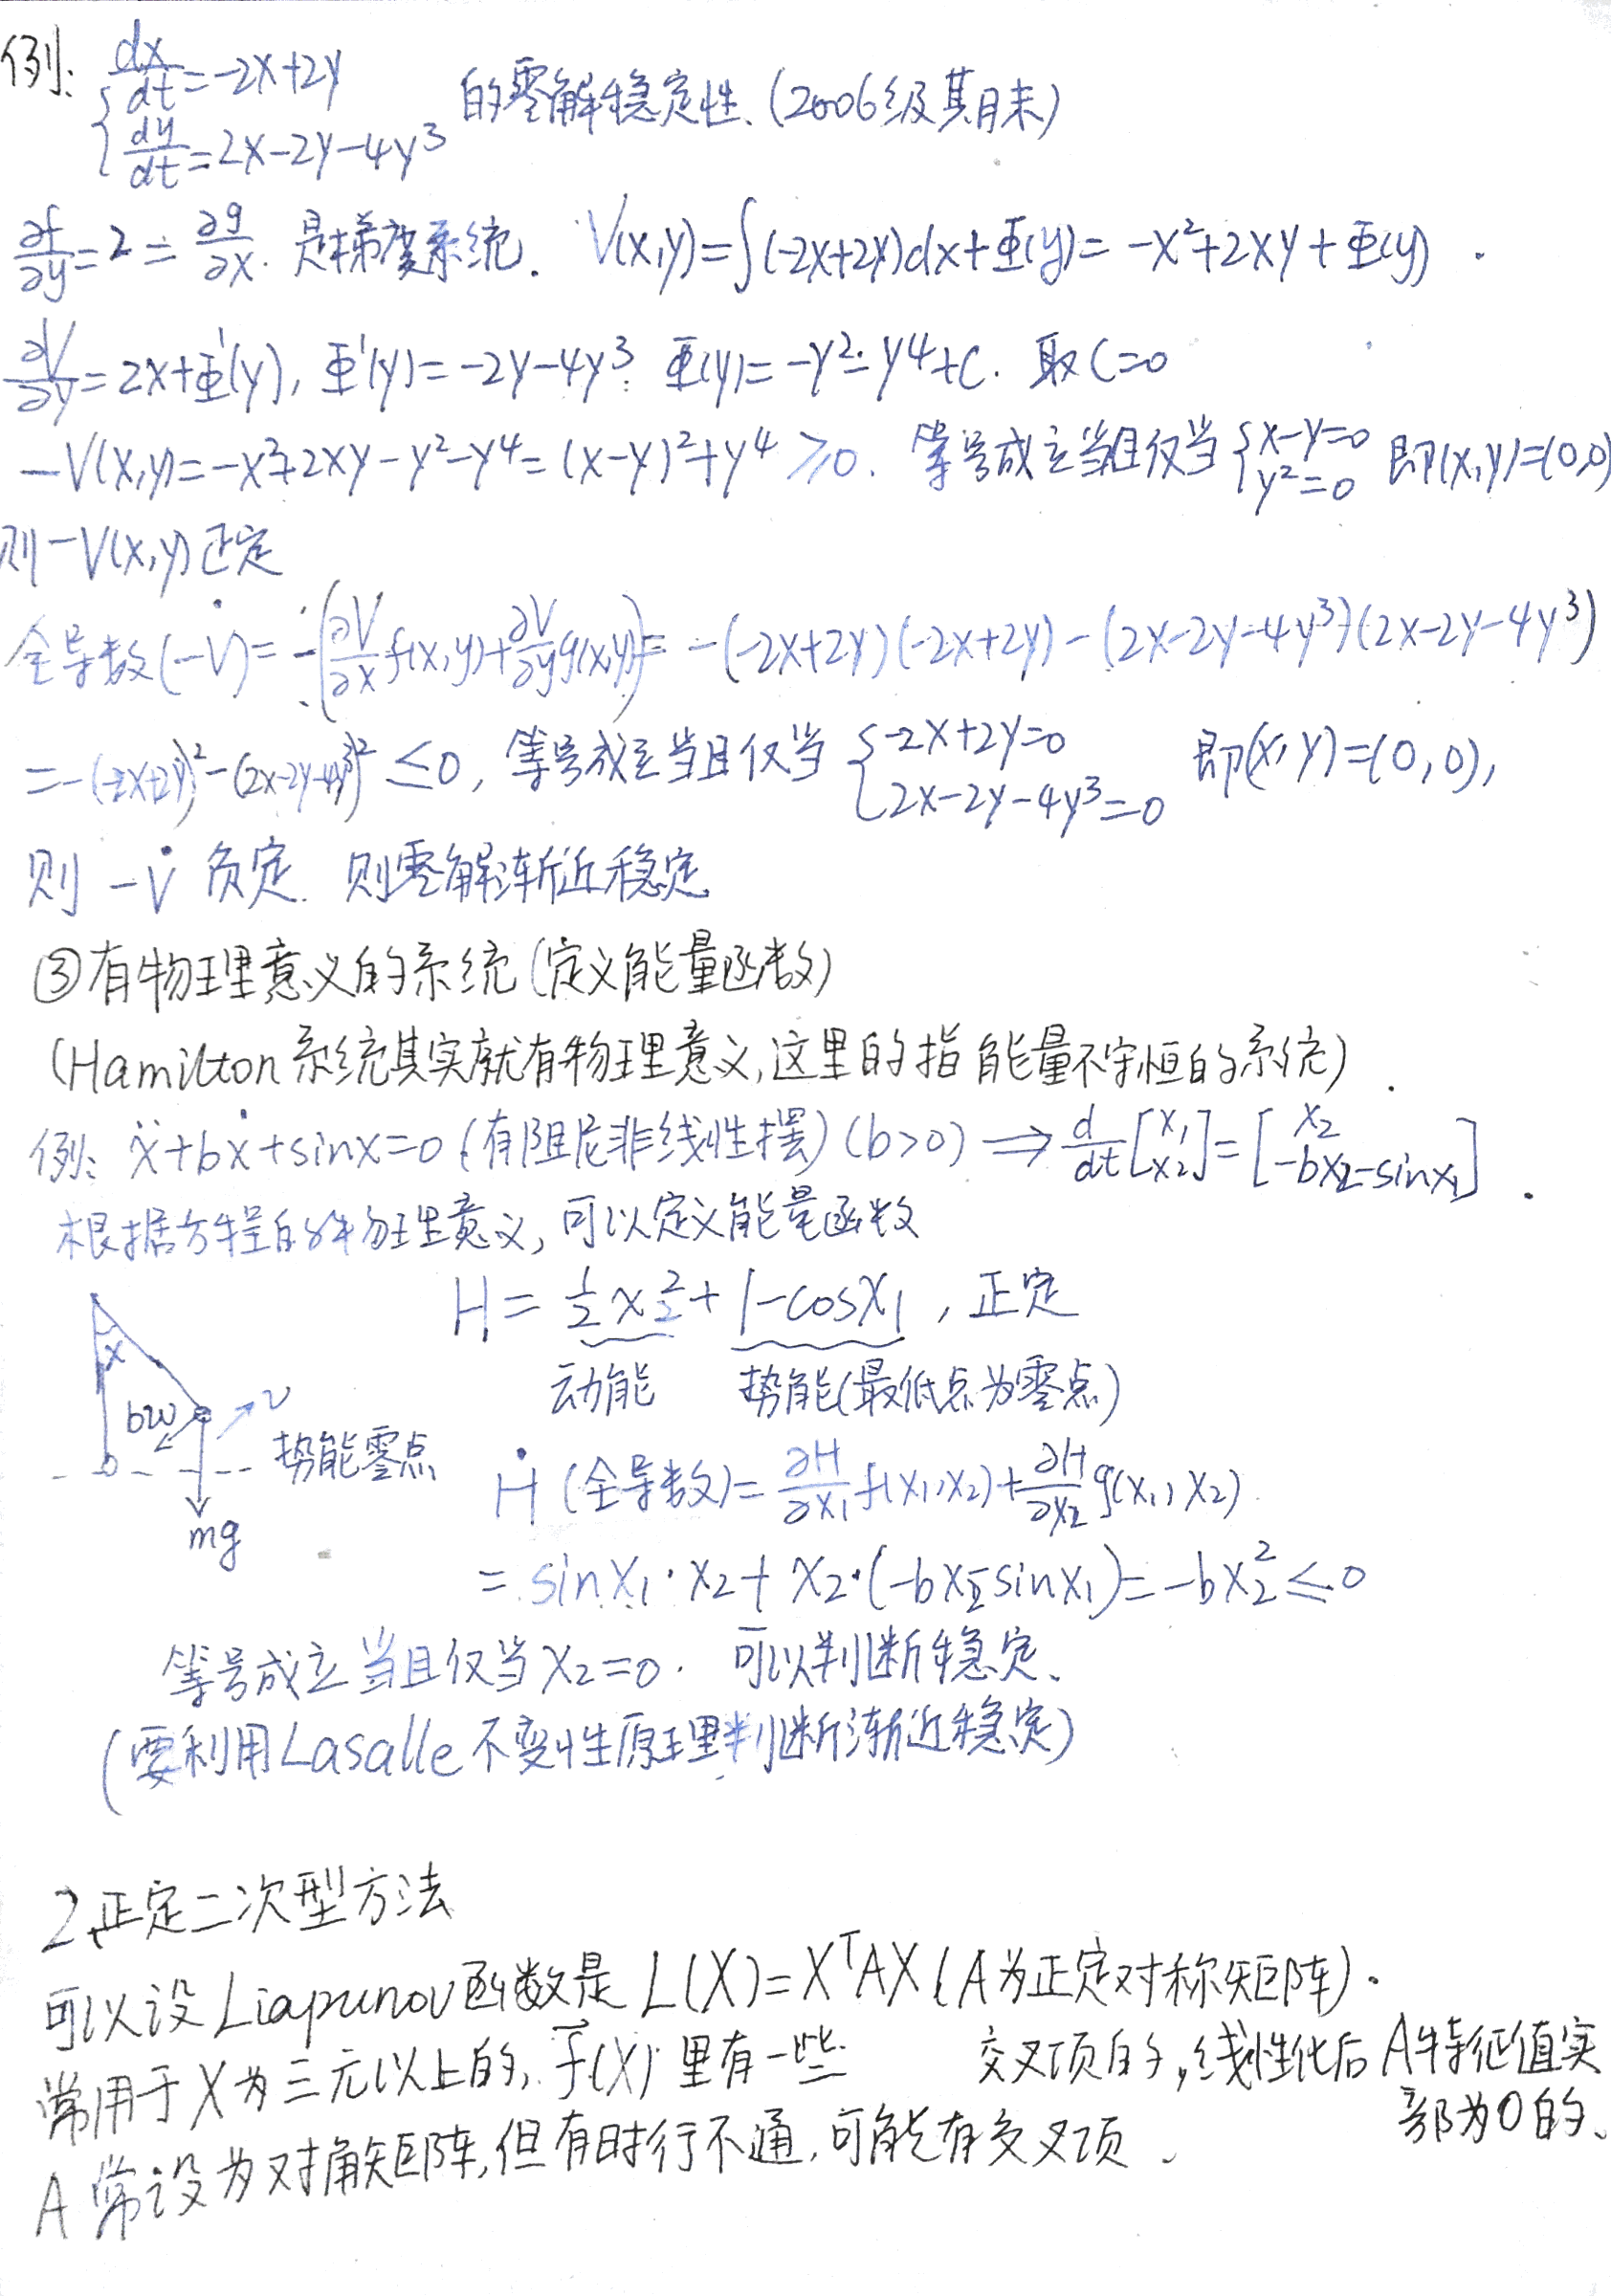 例: { dx/dt = -2x+2y
dy/dt = 2x-2y-4y³ 的零解稳定性. (2006级期末)
∂f/∂y = 2 = ∂g/∂x. 是梯度系统. V(x,y)=∫(-2x+2y)dx+Φ(y)= -x²+2xy+Φ(y).
∂V/∂y = 2x+Φ'(y), Φ'(y)= -2y-4y³. Φ(y)= -y²-y⁴+C. 取C=0
-V(x,y)= -x²+2xy-y²-y⁴ = (x-y)²+y⁴ ≥0. 等号成立当且仅当 { x-y=0 y²=0 即(x,y)=(0,0)
则 -V(x,y)正定
全导数(-V̇)= -(∂V/∂x f(x,y)+∂V/∂y g(x,y)) = -(-2x+2y)(-2x+2y)-(2x-2y-4y³)(2x-2y-4y³)
= -(-2x+2y)²-(2x-2y-4y³)² ≤0, 等号成立当且仅当 { -2x+2y=0 2x-2y-4y³=0 即(x,y)=(0,0),
则 -V̇ 负定. 则零解渐近稳定
③有物理意义的系统(定义能量函数)
(Hamilton系统其实就有物理意义,这里的指能量不守恒的系统).
例: ẍ+bẋ+sinx=0 (有阻尼非线性摆) (b>0) ⟹ d/dt [x₁ x₂] = [x₂ -bx₂-sinx₁].
根据方程的物理意义, 可以定义能量函数
H = ½x₂² + 1-cosx₁, 正定
动能 势能(最低点为零点)
x
bw
v
势能零点
mg
Ḣ (全导数)= ∂H/∂x₁ f(x₁,x₂)+∂H/∂x₂ g(x₁,x₂)
= sinx₁·x₂+x₂·(-bx₂-sinx₁)= -bx₂² ≤0
等号成立当且仅当x₂=0. 可以判断稳定.
(要利用Lasalle不变性原理判断渐近稳定)
2.正定二次型方法
可以设Liapunov函数是 L(X)=XᵀAX (A为正定对称矩阵).
常用于X为三元以上的, f⃗(X)里有一些 交叉项的,线性化后A特征值实
部为0的.
A常设为对角矩阵,但有时行不通,可能有交叉项.